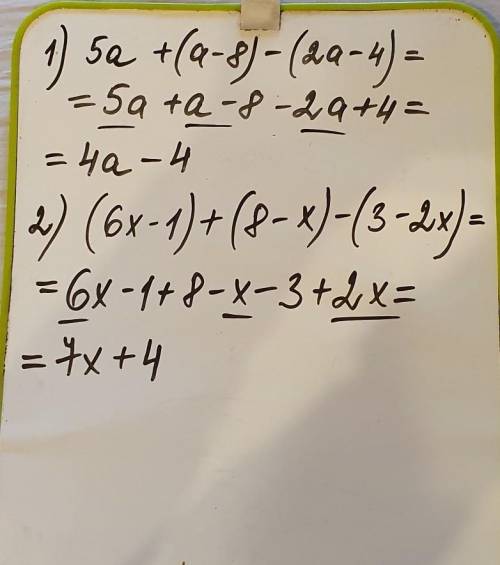 1) 5a + (a - 8) - (2a - 4) =
= 5a + a - 8 - 2a + 4 =
= 4a - 4
2) (6x - 1) + (8 - x) - (3 - 2x) =
= 6x - 1 + 8 - x - 3 + 2x =
= 7x + 4